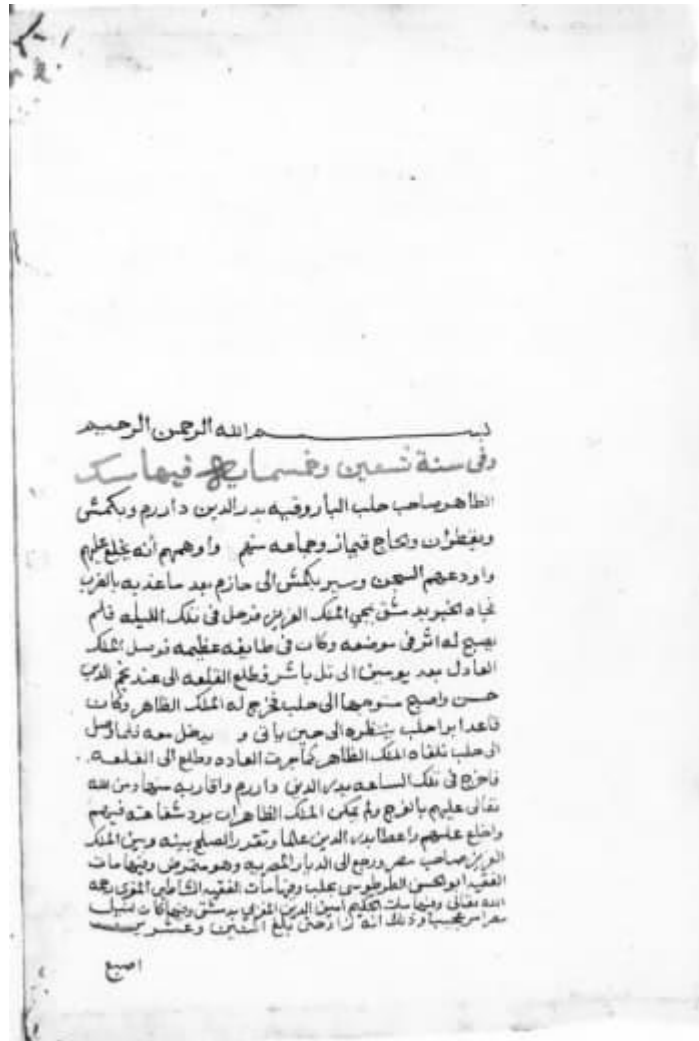 بسم الله الرحمن الرحيم
وفي سنة تسعين وخمسمايه فيها مسك
الظاهر صاحب حلب الياروقيه بدر الدين داررم وبكمش
وبقطران والحاج قيماز وجماعه منهم واوهمهم انه يخلع عليهم
واودعهم السجن وسير بكمش الى حازم بعد ما عذبه بالضرب
فجاه الخبر بدمشق بمجي الملك العزيز فرحل في تلك الليله فلم
يصبح له اثر في موضعه وكان في طايفه عظيمه فوصل الملك
العادل بعد يومين الى تل باشر وطلع القلعه الى عند نجم الدين
حسن واصبح متوجها الى حلب فخرج له الملك الظاهر وكان
قاعدا بوا حلب ينتظره الى حين ياتي و يدخل معه فلما وصل
الى حلب تلقاه الملك الظاهر كما جرت العاده وطلع الى القلعه
فاخرج في تلك الساعه بدر الدين داررم واقاربه منها ومن الله
تعالى عليهم بالفرج ولم يمكن الملك الظاهر ان يرد شفاعته فيهم
واخلع عليهم واعطا بدر الدين علما وتقرر الصلح بينه وبين الملك
العزيز صاحب مصر ورجع الى الديار المصريه وهو متمرض وفيها مات
الفقيه ابو الحسن الطرطوسي بحلب وفيها مات الفقيه الشاطبي المقري رحمه
الله تعالى وفيها مات الحكيم امين الدين المقري بدمشق وفيها كان نيل
مصر امر عجيبا وذلك انه زاد حتى بلغ اثنين وعشرين
اصبع